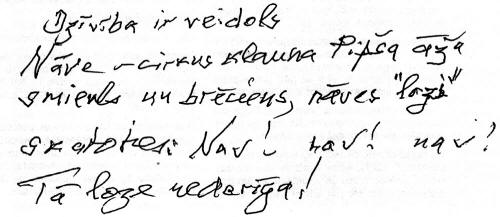 Dzīvība ir veidols
Nāve - cirkus klauna Pipša āža
smiekls un brēciens, nāves "lozi"
skatoties: Nav! nav! nav!
Tā loze nedarīga!